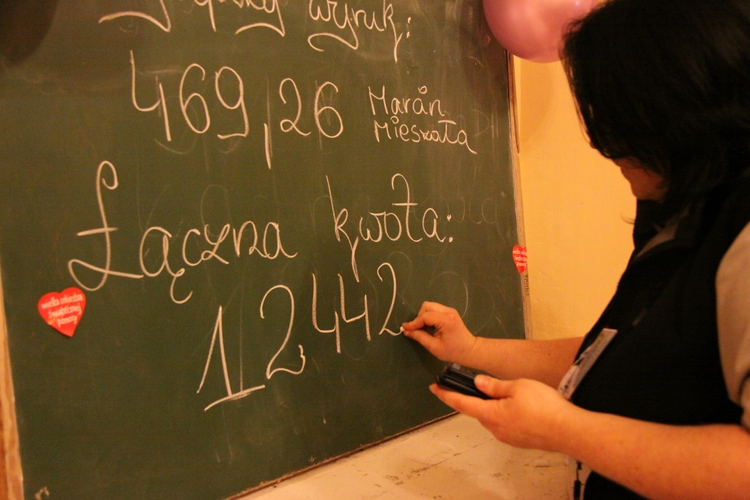 wynik:
469,26 Marán
Mieszała
Łączna kwota:
12,442
wielka orkiestra
świątecznej
pomocy